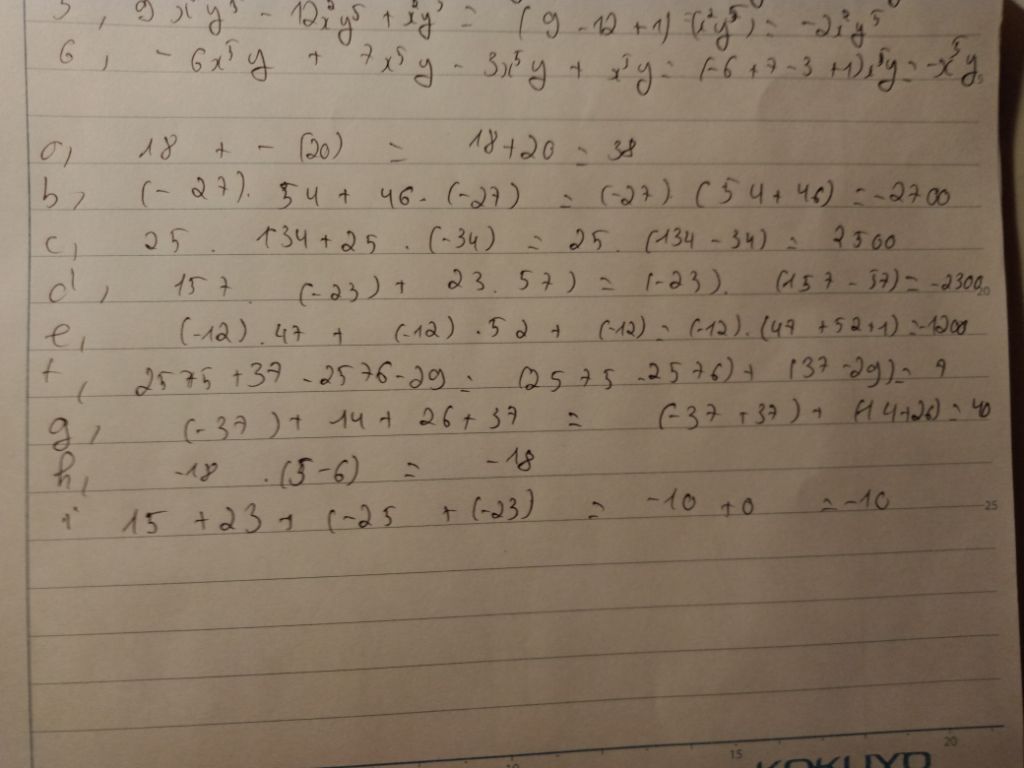 5, 9x²y⁵ - 12x²y⁵ + x²y⁵ = (9 - 12 + 1) (x²y⁵) = -2x²y⁵
6, - 6x⁵y + 7x⁵y - 3x⁵y + x⁵y = (-6 + 7 - 3 + 1)x⁵y = -x⁵y
a, 18 + - (20) = 18+20 = 38
b, (- 27). 54 + 46. (-27) = (-27) (54 + 46) = -2700
c, 25 . 134 + 25 . (-34) = 25. (134 - 34) = 2500
d, 157 (-23) + 23. 57) = (-23). (157 - 57) = -2300
20
e, (-12) .47 + (-12) .52 + (-12) = (-12). (47 + 52 + 1) = -1200
f, 2575 + 37 - 2576 - 29 = (2575 - 2576) + (37 - 29) =
g, (-37) + 14 + 26 + 37 = (-37 + 37) + (14 + 26) = 40
h, -18 . (5-6) = -18
i 15 + 23 + (-25 + (-23) = -10 + 0 = -10
25
15
20
KOKUYO